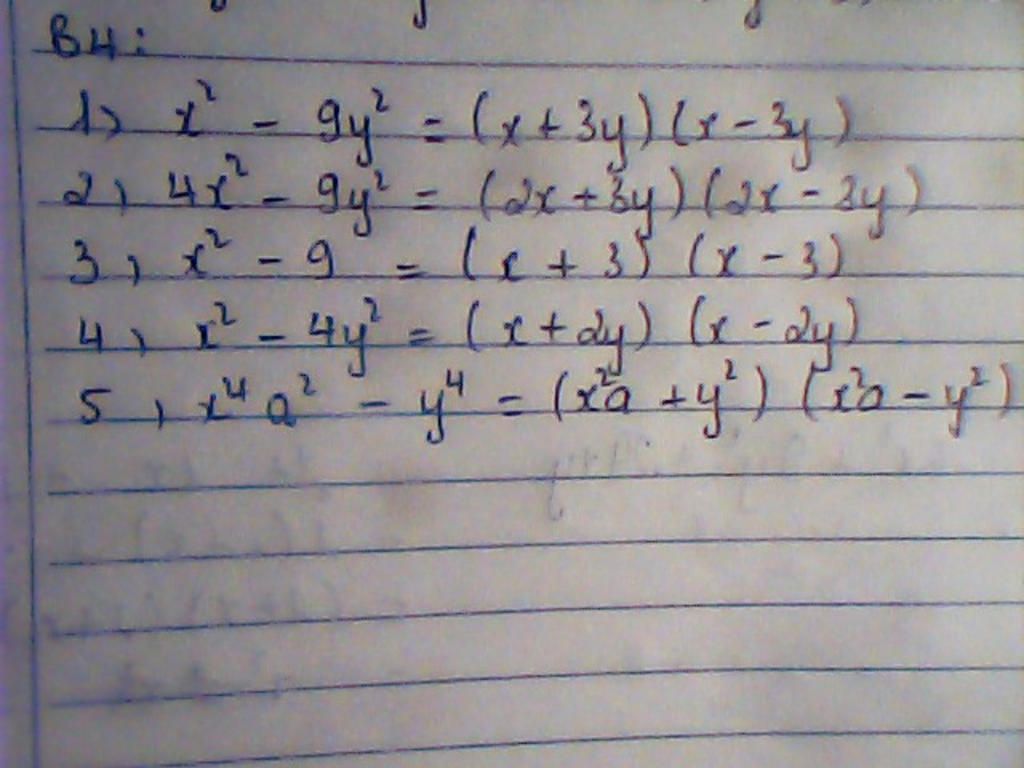 B4:
1) x² - 9y² = (x + 3y) (x - 3y)
2) 4x² - 9y² = (2x + 3y) (2x - 3y)
3) x² - 9 = (x + 3) (x - 3)
4) x² - 4y² = (x + 2y) (x - 2y)
5) x⁴a² - y⁴ = (x²a + y²) (x²a - y²)